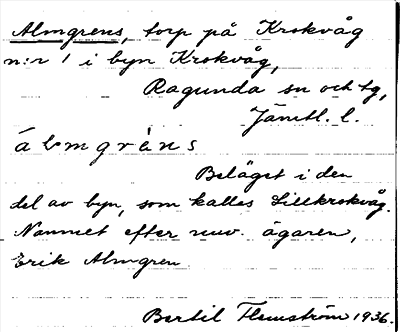 Almgrens, torp på Krokvåg
n:r 1 i byn Krokvåg,
Ragunda sn och tg,
Jämtl. l.
Beläget i den
del av byn, som kallas Lillkrokvåg.
Namnet efter nuv. ägaren,
Erik Almgren
Bertil Flemström 1936.